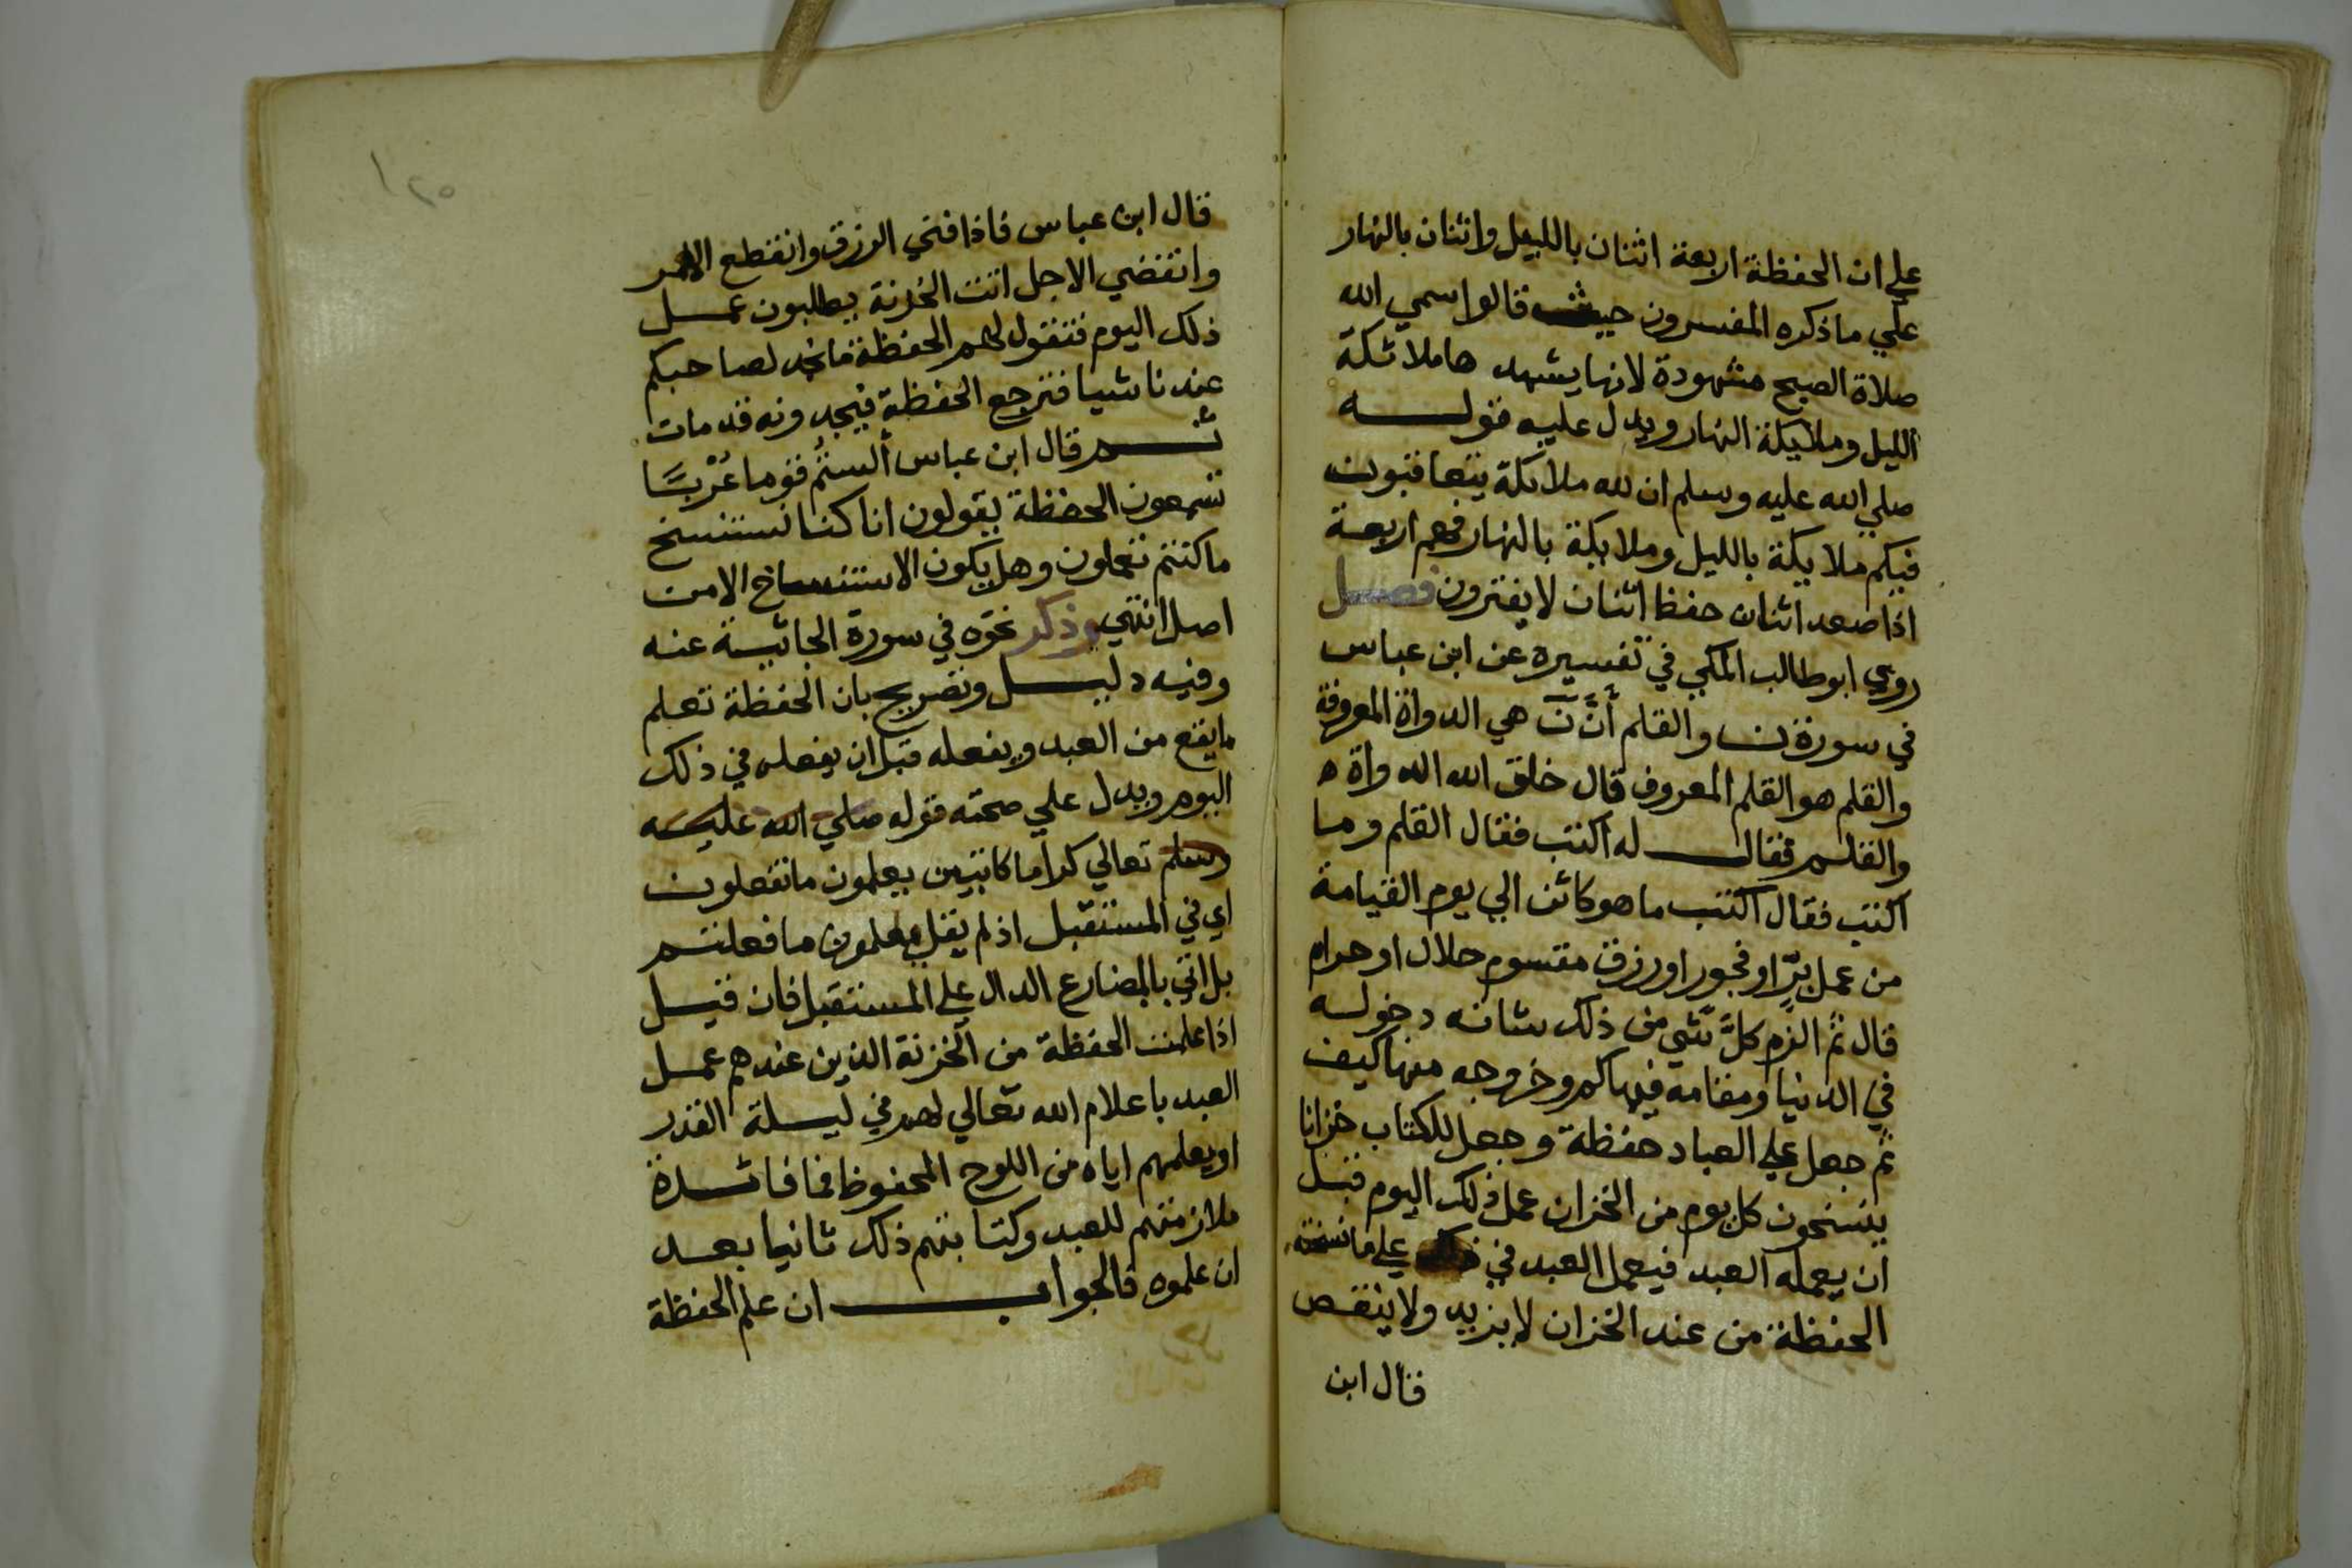 علي ان الحفظة اربعة اثنان بالليل واثنان بالنهار
علي ما ذكره المفسرون حيث قالوا سمي الله
صلاة الصبح مشهودة لانها يشهدها ملائكة
الليل وملايكة النهار ويدل عليه قوله
صلي الله عليه وسلم ان لله ملائكة يتعاقبون
فيكم ملايكة بالليل وملايكة بالنهار فهم اربعة
اذا صعد اثنان حفظ اثنان لا يفترون فصل
روي ابو طالب المكي في تفسيره عن ابن عباس
في سورة ن والقلم أنّ نَ هي الدواة المعروفة
والقلم هو القلم المعروف قال خلق الله الدواة ه
والقلم فقال له اكتب فقال القلم وما
اكتب فقال اكتب ما هو كائن الي يوم القيامة
من عمل برٍّ او فجور او رزق مقسوم حلال او حرام
قال ثم الزم كلَّ شي من ذلك شانه دخوله
في الدنيا ومقامه فيها كم وخروجه منها كيف
ثم جعل علي العباد حفظة وجعل للكتاب خزانا
ينسخون كل يوم من الخزان عمل ذلك اليوم قبل
ان يعمله العبد فيعمل العبد في ذلك علي ما نسخته
الحفظة من عند الخزان لا يزيد ولا ينقص
قال ابن
١٢٥
قال ابن عباس فاذا فني الرزق وانقطع الامر
وانقضي الاجل اتت الخزنة يطلبون عمل
ذلك اليوم فتقول لهم الحفظة ما نجد لصاحبكم
عندنا شيا فترجع الحفظة فيجدونه قد مات
ثم قال ابن عباس ألستُم قوما عُرْبًا
تسمعون الحفظة يقولون انا كنا نستنسخ
ما كنتم تعملون وهل يكون الاستنساخ الا من
اصل انتهي وذكر نحوه في سورة الجاثية عنه
وفيه دليل وتصريح بان الحفظة تعلم
ما يقع من العبد ويفعله قبل ان يفعله في ذلك
اليوم ويدل علي صحته قوله صلي الله عليه
وسلم تعالي كراما كاتبين يعلمون ما تفعلون
اي في المستقبل اذ لم يقل يعلمون ما فعلتم
بل اتي بالمضارع الدال علي المستقبل فان قيل
اذا علمت الحفظة من الخزنة الذين عندهم عمل
العبد باعلام الله تعالي لهم في ليلة القدر
او يعلمهم اياه من اللوح المحفوظ فما فائدة
ملازمتهم للعبد وكتابتهم ذلك ثانيا بعد
ان علموه فالجواب ان علم الحفظة